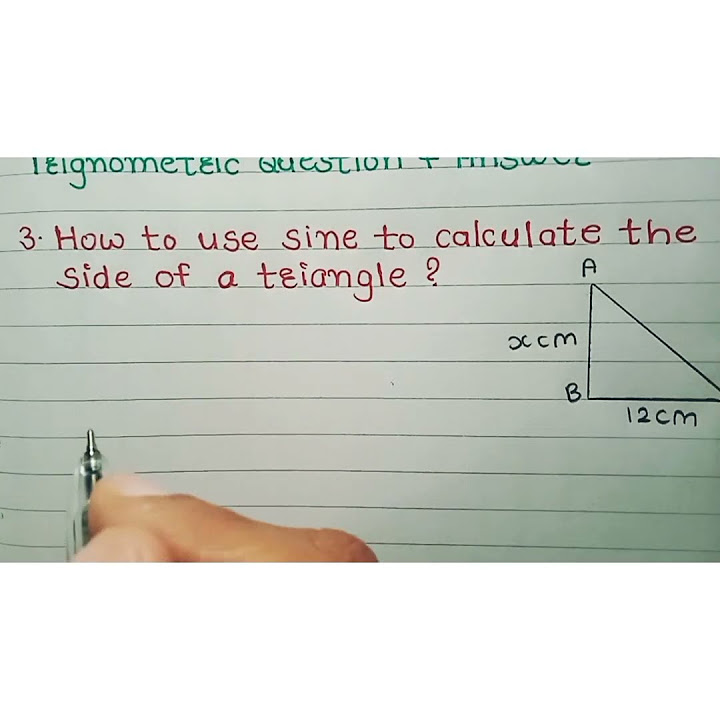 Trignometric Question + Answer
3. How to use sine to calculate the
side of a triangle ?
A
x cm
B
12cm